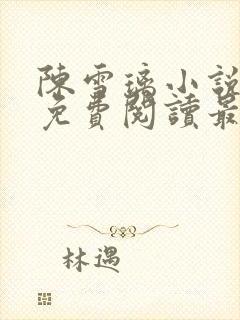 陳雪璃小說
免費閱讀最
林遇